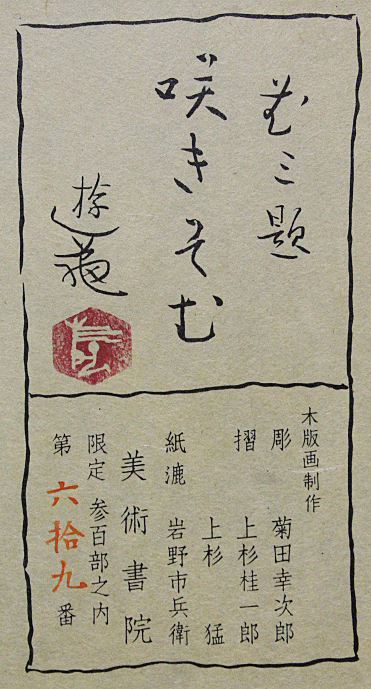 花三題
咲きそむ
遊亀
木版画制作
彫 菊田幸次郎
摺 上杉桂一郎
上杉 猛
紙漉 岩野市兵衛
美術書院
限定 参百部之内
第六拾九番